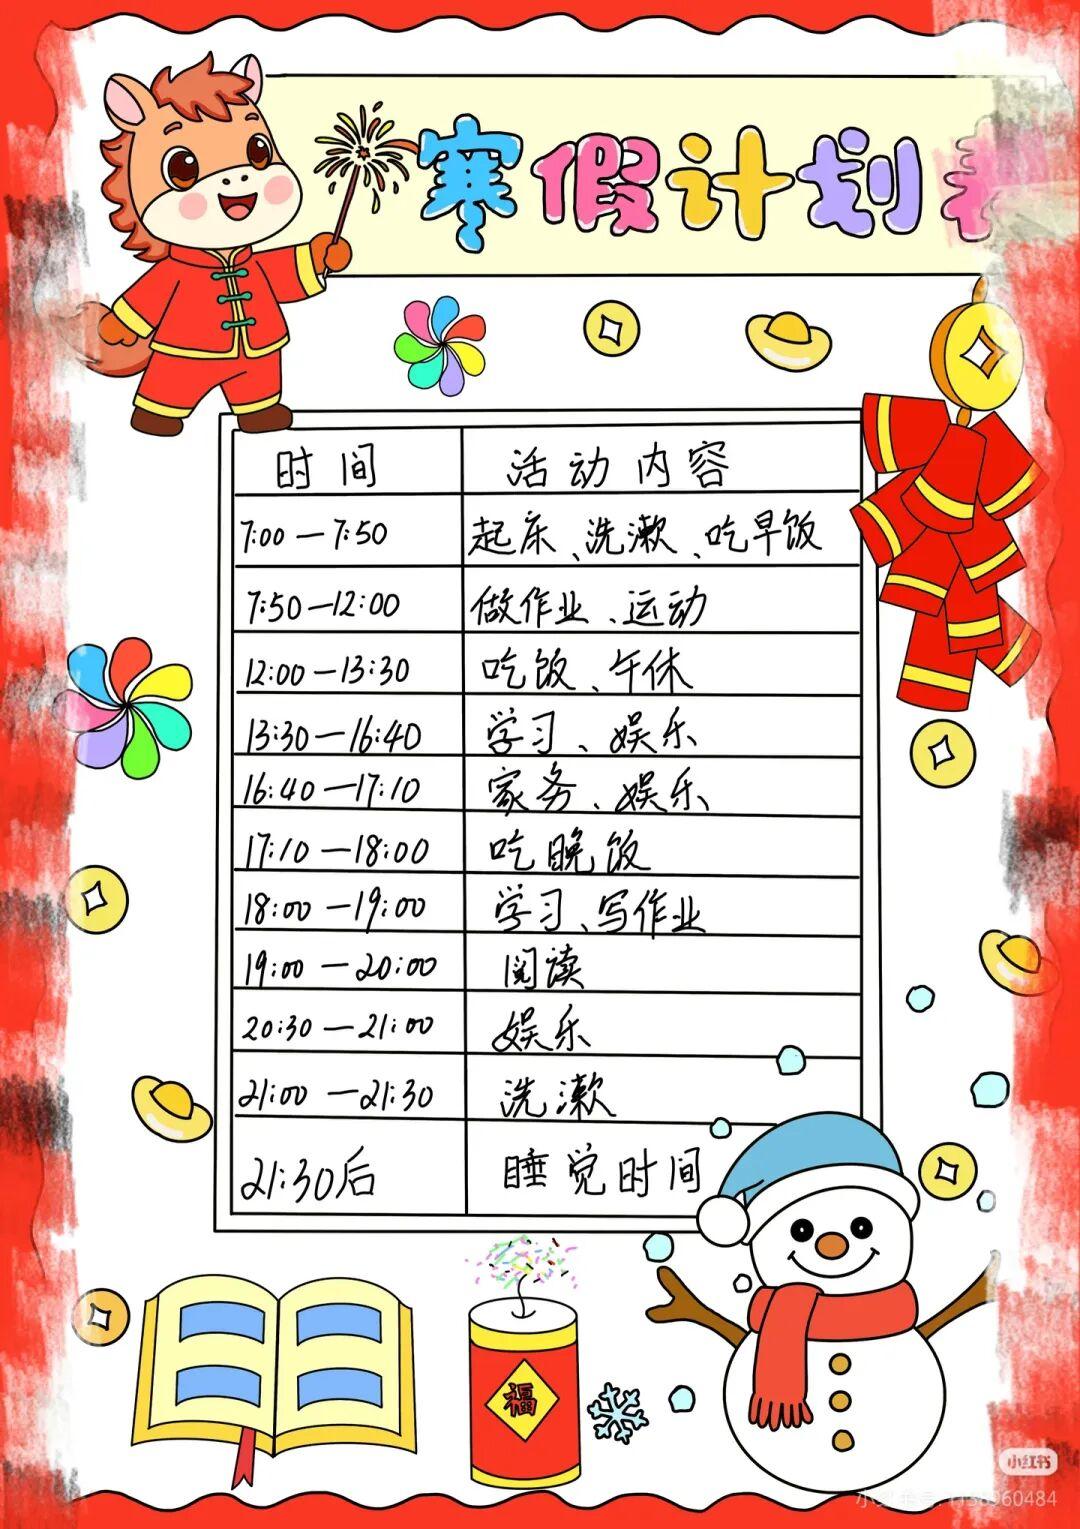 寒假计划表
时间 活动内容
7:00—7:50 起床、洗漱、吃早饭
7:50—12:00 做作业、运动
12:00—13:30 吃饭、午休
13:30—16:40 学习、娱乐
16:40—17:10 家务、娱乐
17:10—18:00 吃晚饭
18:00—19:00 学习、写作业
19:00—20:00 阅读
20:30—21:00 娱乐
21:00—21:30 洗漱
21:30后 睡觉时间
福
小红书